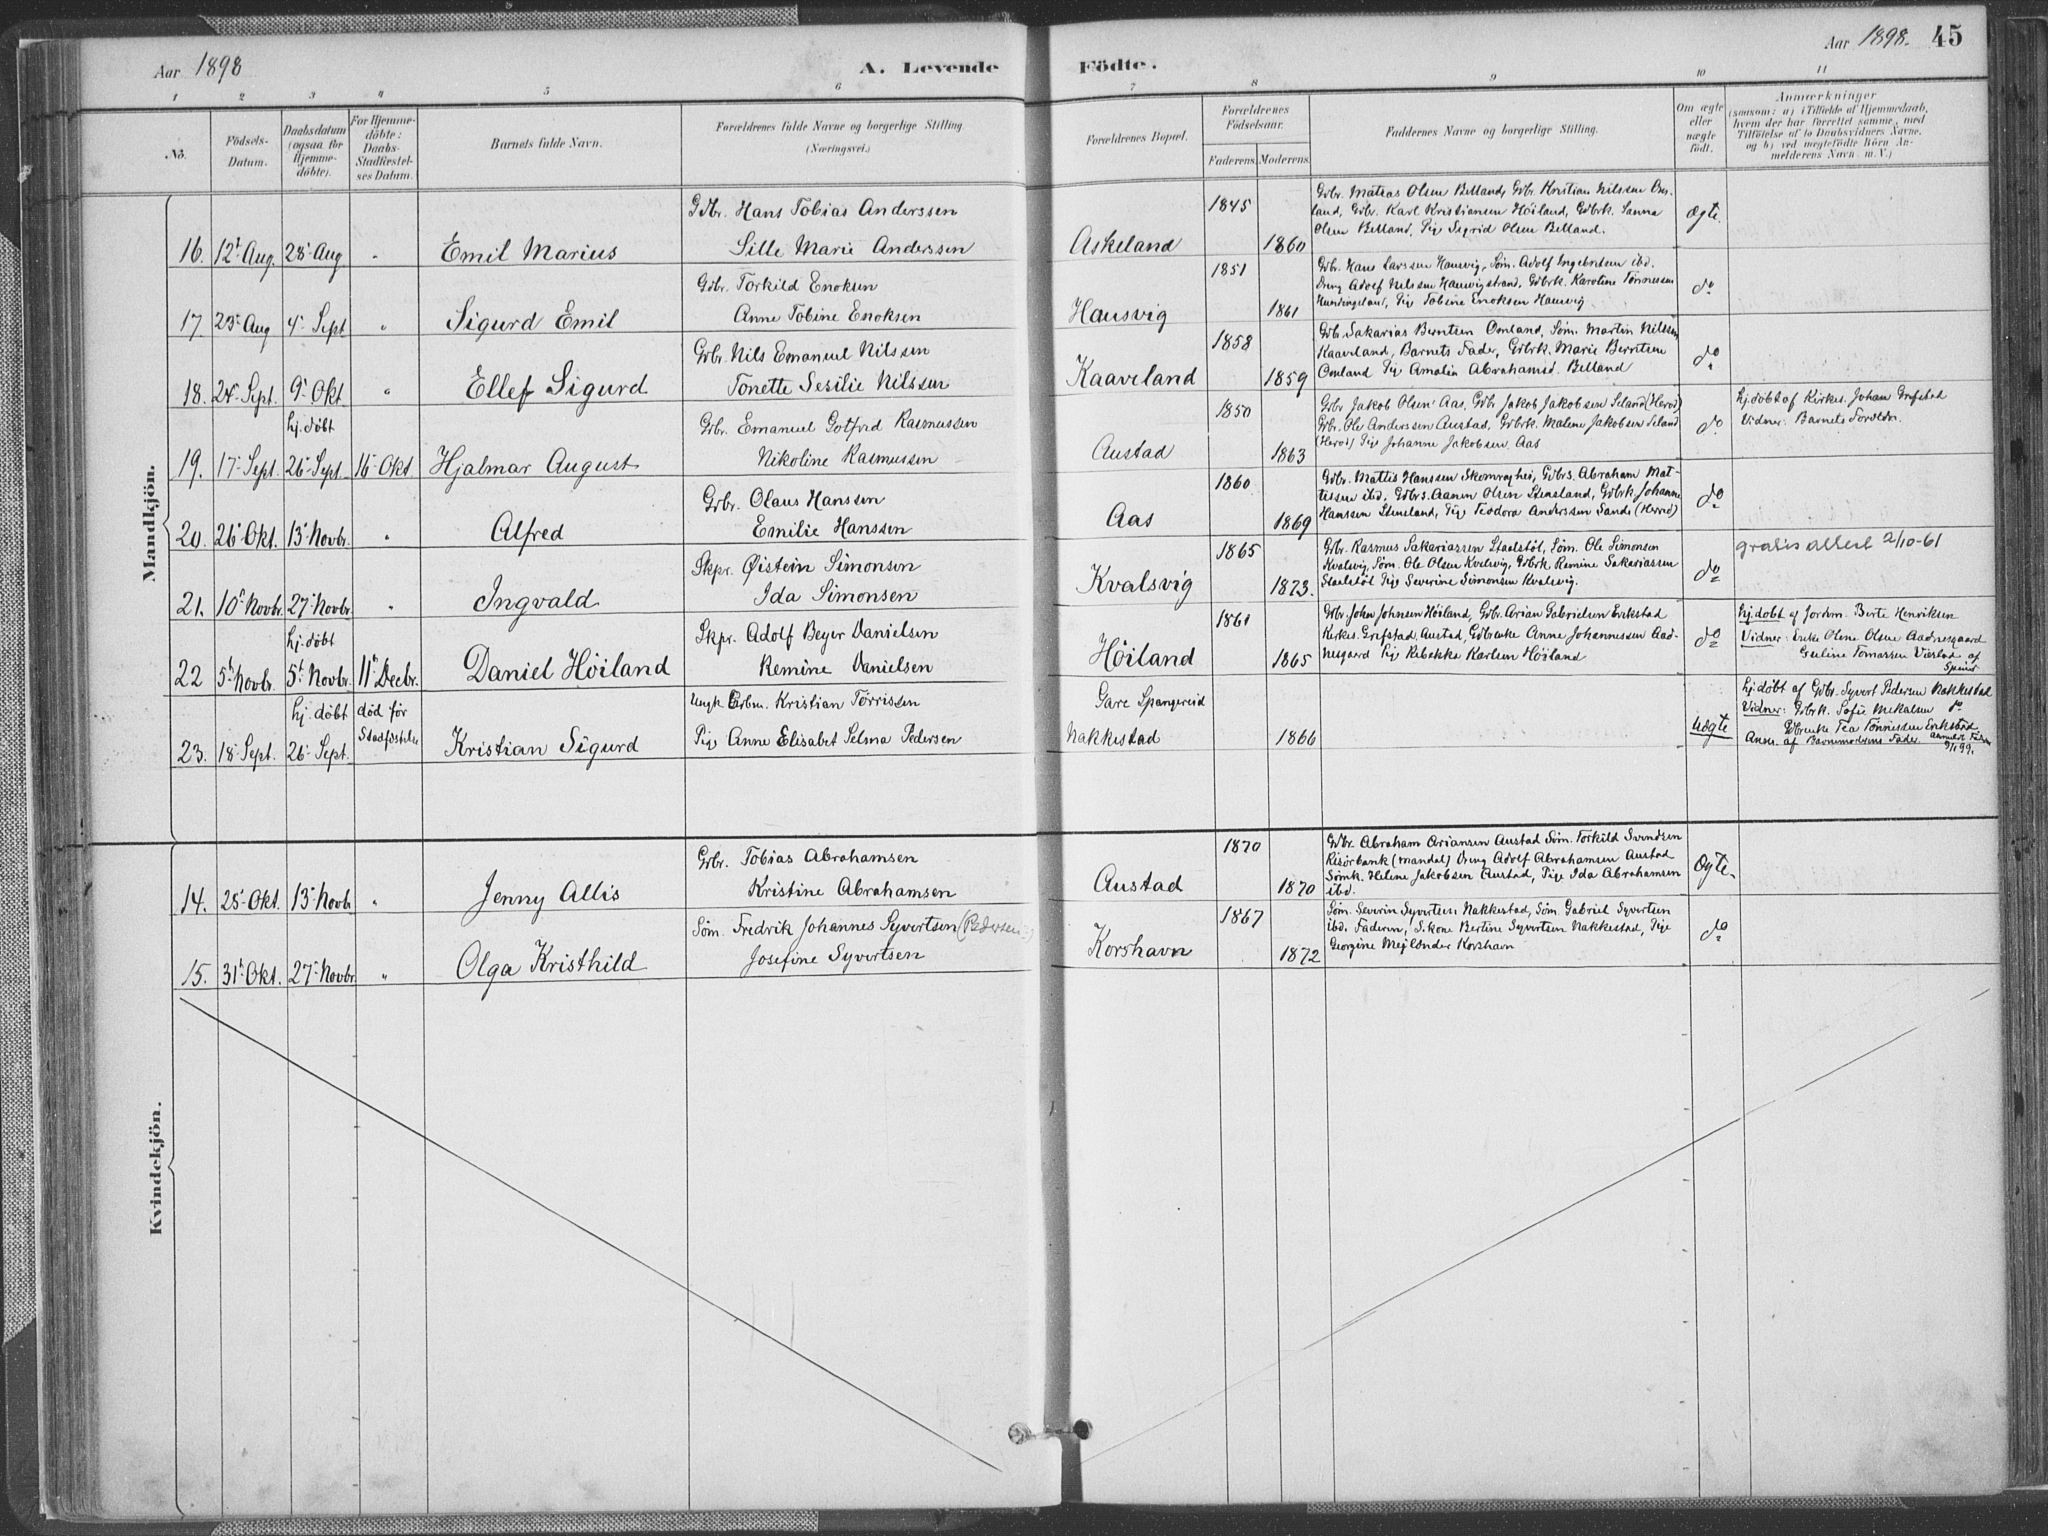 Aar 1898
A. Levende Födte.
Aar 1898. 45
1 2 3 4 5 6 7 8 9 10 11
No.
Födsels-Datum.
Daabsdatum (ogsaa for Hjemmedöbte).
For Hjemmedöbte: Daabs-Stadfæstelses Datum.
Barnets fulde Navn.
Forældrenes fulde Navne og borgerlige Stilling
(Næringsvei.)
Forældrenes Bopæl.
Forældrenes Födselsaar.
Faderens. Moderens.
Faddernes Navne og borgerlige Stilling.
Om ægte eller uægte födt.
Anmærkninger
(saasom: a) i Tilfælde af Hjemmedaab, hvem der har forrettet samme, med Tilföielse af to Daabsvidners Navne, og b) ved uegtefödte Börn Anmelderens Navn m. V.)
Mandkjön.
16. 12t Aug. 28 Aug " Emil Marius
Gdbr. Hans Tobias Anderssen
Sille Marie Anderssen
Askeland 1845 1860
Gdbr. Matias Olsen Belland, Gdbr. Kristian Nilssen Om-
land, Gdbr. Karl Kristiansen Höiland, Gdbrk. Sanna
Olsen Belland, Pige Sigrid Olsen Belland.
Ægte.
17. 23 Aug 4 Sept " Sigurd Emil
Gdbr. Torkild Enoksen
Anne Tobine Enoksen
Hausvig 1851 1861
Gdbr. Hans Larssen Hausvig, Søm. Adolf Ingebretsen ibd.
Dreng Adolf Nilssen Hausvigstrand, Gdbrk. Karoline Tönnessen
Hundingsland, Pige Tobine Enoksen Hausvig
do
18. 24 Sept. 9 Okt. " Ellef Sigurd
Gdbr. Nils Emanuel Nilssen
Tonette Sesilie Nilssen
Kaaveland 1858 1859
Gdbr. Sakarias Berntsen Omland, Søm. Martin Nilssen
Kaaveland, Barnets Fader, Gdbrk. Marie Berntsen
Omland Pige Amalia Abrahamsd. Belland
do
hj. döbt
19. 17 Sept. 26 Sept. 16 Okt. Hjalmar August
Gdbr. Emanuel Gotfred Rasmussen
Nikoline Rasmussen
Austad 1850 1863
Gdbr Jakob Olsen Aas, Gdbr Jakob Jakobsen Seland (Herod)
Gdbr. Ole Anderssen Austad, Gdbrk. Malene Jakobsen Seland
(Herod) Pige Johanne Jakobsen Aas
do
hj. döbt af Kirkes. Johan Grefstad
Vidner: Barnets Foreldr.
20. 26 Okt. 13 Novbr. " Alfred
Gdbr. Olaus Hanssen
Emilie Hanssen
Aas 1860 1869
Gdbr. Mattis Hanssen Skomraghei, Gdbrs. Abraham Mat-
tissen ibd, Gdbrs. Aanen Olsen Stensland, Gdbrk. Johanne
Hanssen Stensland, Pige Teodora Anderssen Sande (Herred)
do
21. 10 Novbr. 27 Novbr. " Ingvald
Skpr. Øistein Simonsen
Ida Simonsen
Kvalsvig 1865 1873.
Gdbr. Rasmus Sakariassen Staalstöl, Søm. Ole Simonsen
Kvalsvig, Søm. Ole Olsen Kvelsvig, Gdbrk. Remine Sakariassen
Staalstöl Pige Severine Simonsen Kvalsvig.
do
gratis attest 2/10-61
hj. döbt
22 5t Novbr. 5t Novbr. 11 Decbr. Daniel Höiland
Skpr. Adolf Beyer Danielsen
Remine Danielsen
Höiland 1861 1865
Gdbr. John Johnsen Höiland, Gdbr. Arian Gabrielsen Erikstad
Kirkes. Grefstad, Austad, Gdbrenke Anne Johannessen Aad-
nesgaard Pige Rebekke Karlsen Höiland
do
hj. döbt af Jordm. Berte Henriksen
Vidner: Enke Olene Olsen Aadnesgaard
Geline Tomassen Værstad af
hj. döbt död før Stadfæstelse
23. 18 Sept. 26 Sept. Kristian Sigurd
Ungk Arbm. Kristian Tørrissen
Pige Anne Elisabet Selma Pedersen
Gare Spangereid
Nakkestad 1866
Uægte
hj. döbt af Gdbr. Syvert Pedersen Nakkestad
Vidner: Gdbrk. Sofie Mekalsen do
Gdbrenke Tea Tønnessen Erikstad
Anm. af Barnemoderens Fader.
Kvindekjön.
14. 25 Okt. 13 Novb. " Jenny Allis
Gdbr. Tobias Abrahamsen
Kristine Abrahamsen
Austad 1870 1870
Gdbr. Abraham Ariansen Austad Søm. Torkild Svendsen
Risörbank (Mandal) Dreng Adolf Abrahamsen Austad
Sømk. Helene Jakobsen Austad, Pige Ida Abrahamsen
ibd.
Ægte.
15. 31t Okt. 27 Novbr. " Olga Kristhild
Søm. Fredrik Johannes Syvertsen (Pedersen)
Josefine Syvertsen
Korshavn 1867 1872
Søm. Severin Syvertsen Nakkestad, Søm. Gabriel Syvertsen
ibd. Faderen, S.kone Bertine Syvertsen Nakkestad, Pige
Georgine Mejlænder Korshavn
do